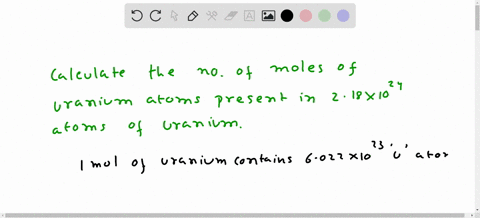 Calculate the no. of moles of
uranium atoms present in 2.18×10²⁴
atoms of uranium.
1 mol of uranium contains 6.022×10²³ 'U' ator